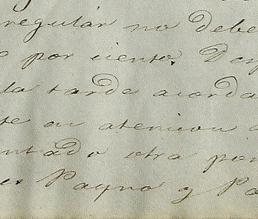 regular no debe
por ciento. Des
la tarde acorda
en atencion a
ntado otra por
Payno y Pa